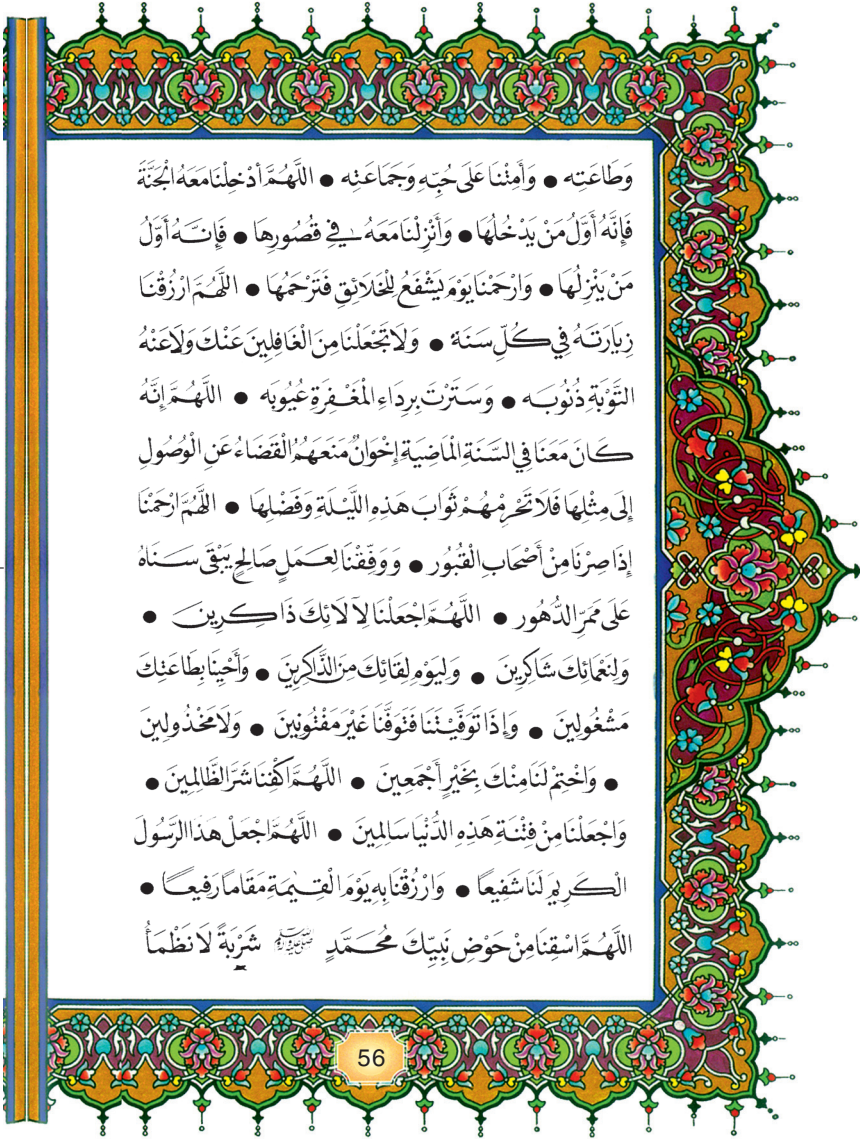 وَطَاعَتِه ● وَأَمِتْنَا عَلَى حُبِّهِ وَجَمَاعَتِه ● اللَّهُمَّ أَدْخِلْنَا مَعَهُ الْجَنَّةَ
فَإِنَّهُ أَوَّلُ مَنْ يَدْخُلُهَا ● وَأَنْزِلْنَا مَعَهُ فِي قُصُورِهَا ● فَإِنَّهُ أَوَّلُ
مَنْ يَنْزِلُهَا ● وَارْحَمْنَا يَوْمَ يَشْفَعُ لِلْخَلَائِقِ فَتَرْحَمُهَا ● اللَّهُمَّ ارْزُقْنَا
زِيَارَتَهُ فِي كُلِّ سَنَة ● وَلَا تَجْعَلْنَا مِنَ الْغَافِلِينَ عَنْكَ وَلَا عَنْهُ
التَّوْبَةِ ذُنُوبَه ● وَسَتَرْتَ بِرِدَاءِ الْمَغْفِرَةِ عُيُوبَه ● اللَّهُمَّ إِنَّهُ
كَانَ مَعَنَا فِي السَّنَةِ الْمَاضِيَةِ إِخْوَانٌ مَنَعَهُمُ الْقَضَاءُ عَنِ الْوُصُولِ
إِلَى مِثْلِهَا فَلَا تَحْرِمْهُمْ ثَوَابَ هَذِهِ اللَّيْلَةِ وَفَضْلِهَا ● اللَّهُمَّ ارْحَمْنَا
إِذَا صِرْنَا مِنْ أَصْحَابِ الْقُبُور ● وَوَفِّقْنَا لِعَمَلٍ صَالِحٍ يَبْقَى سَنَاهُ
عَلَى مَمَرِّ الدُّهُور ● اللَّهُمَّ اجْعَلْنَا لِآلَائِكَ ذَاكِرِينَ ●
وَلِنَعْمَائِكَ شَاكِرِينَ ● وَلِيَوْمِ لِقَائِكَ مِنَ الذَّاكِرِينَ ● وَأَحْيِنَا بِطَاعَتِكَ
مَشْغُولِينَ ● وَإِذَا تَوَفَّيْتَنَا فَتَوَفَّنَا غَيْرَ مَفْتُونِينَ ● وَلَا مَخْذُولِينَ
● وَاخْتِمْ لَنَا مِنْكَ بِخَيْرٍ أَجْمَعِينَ ● اللَّهُمَّ اكْفِنَا شَرَّ الظَّالِمِينَ ●
وَاجْعَلْنَا مِنْ فِتْنَةِ هَذِهِ الدُّنْيَا سَالِمِينَ ● اللَّهُمَّ اجْعَلْ هَذَا الرَّسُولَ
الْكَرِيمَ لَنَا شَفِيعًا ● وَارْزُقْنَا بِهِ يَوْمَ الْقِيٰمَةِ مَقَامًا رَفِيعًا ●
اللَّهُمَّ اسْقِنَا مِنْ حَوْضِ نَبِيِّكَ مُحَمَّدٍ ﷺ شَرْبَةً لَا نَظْمَأُ
56